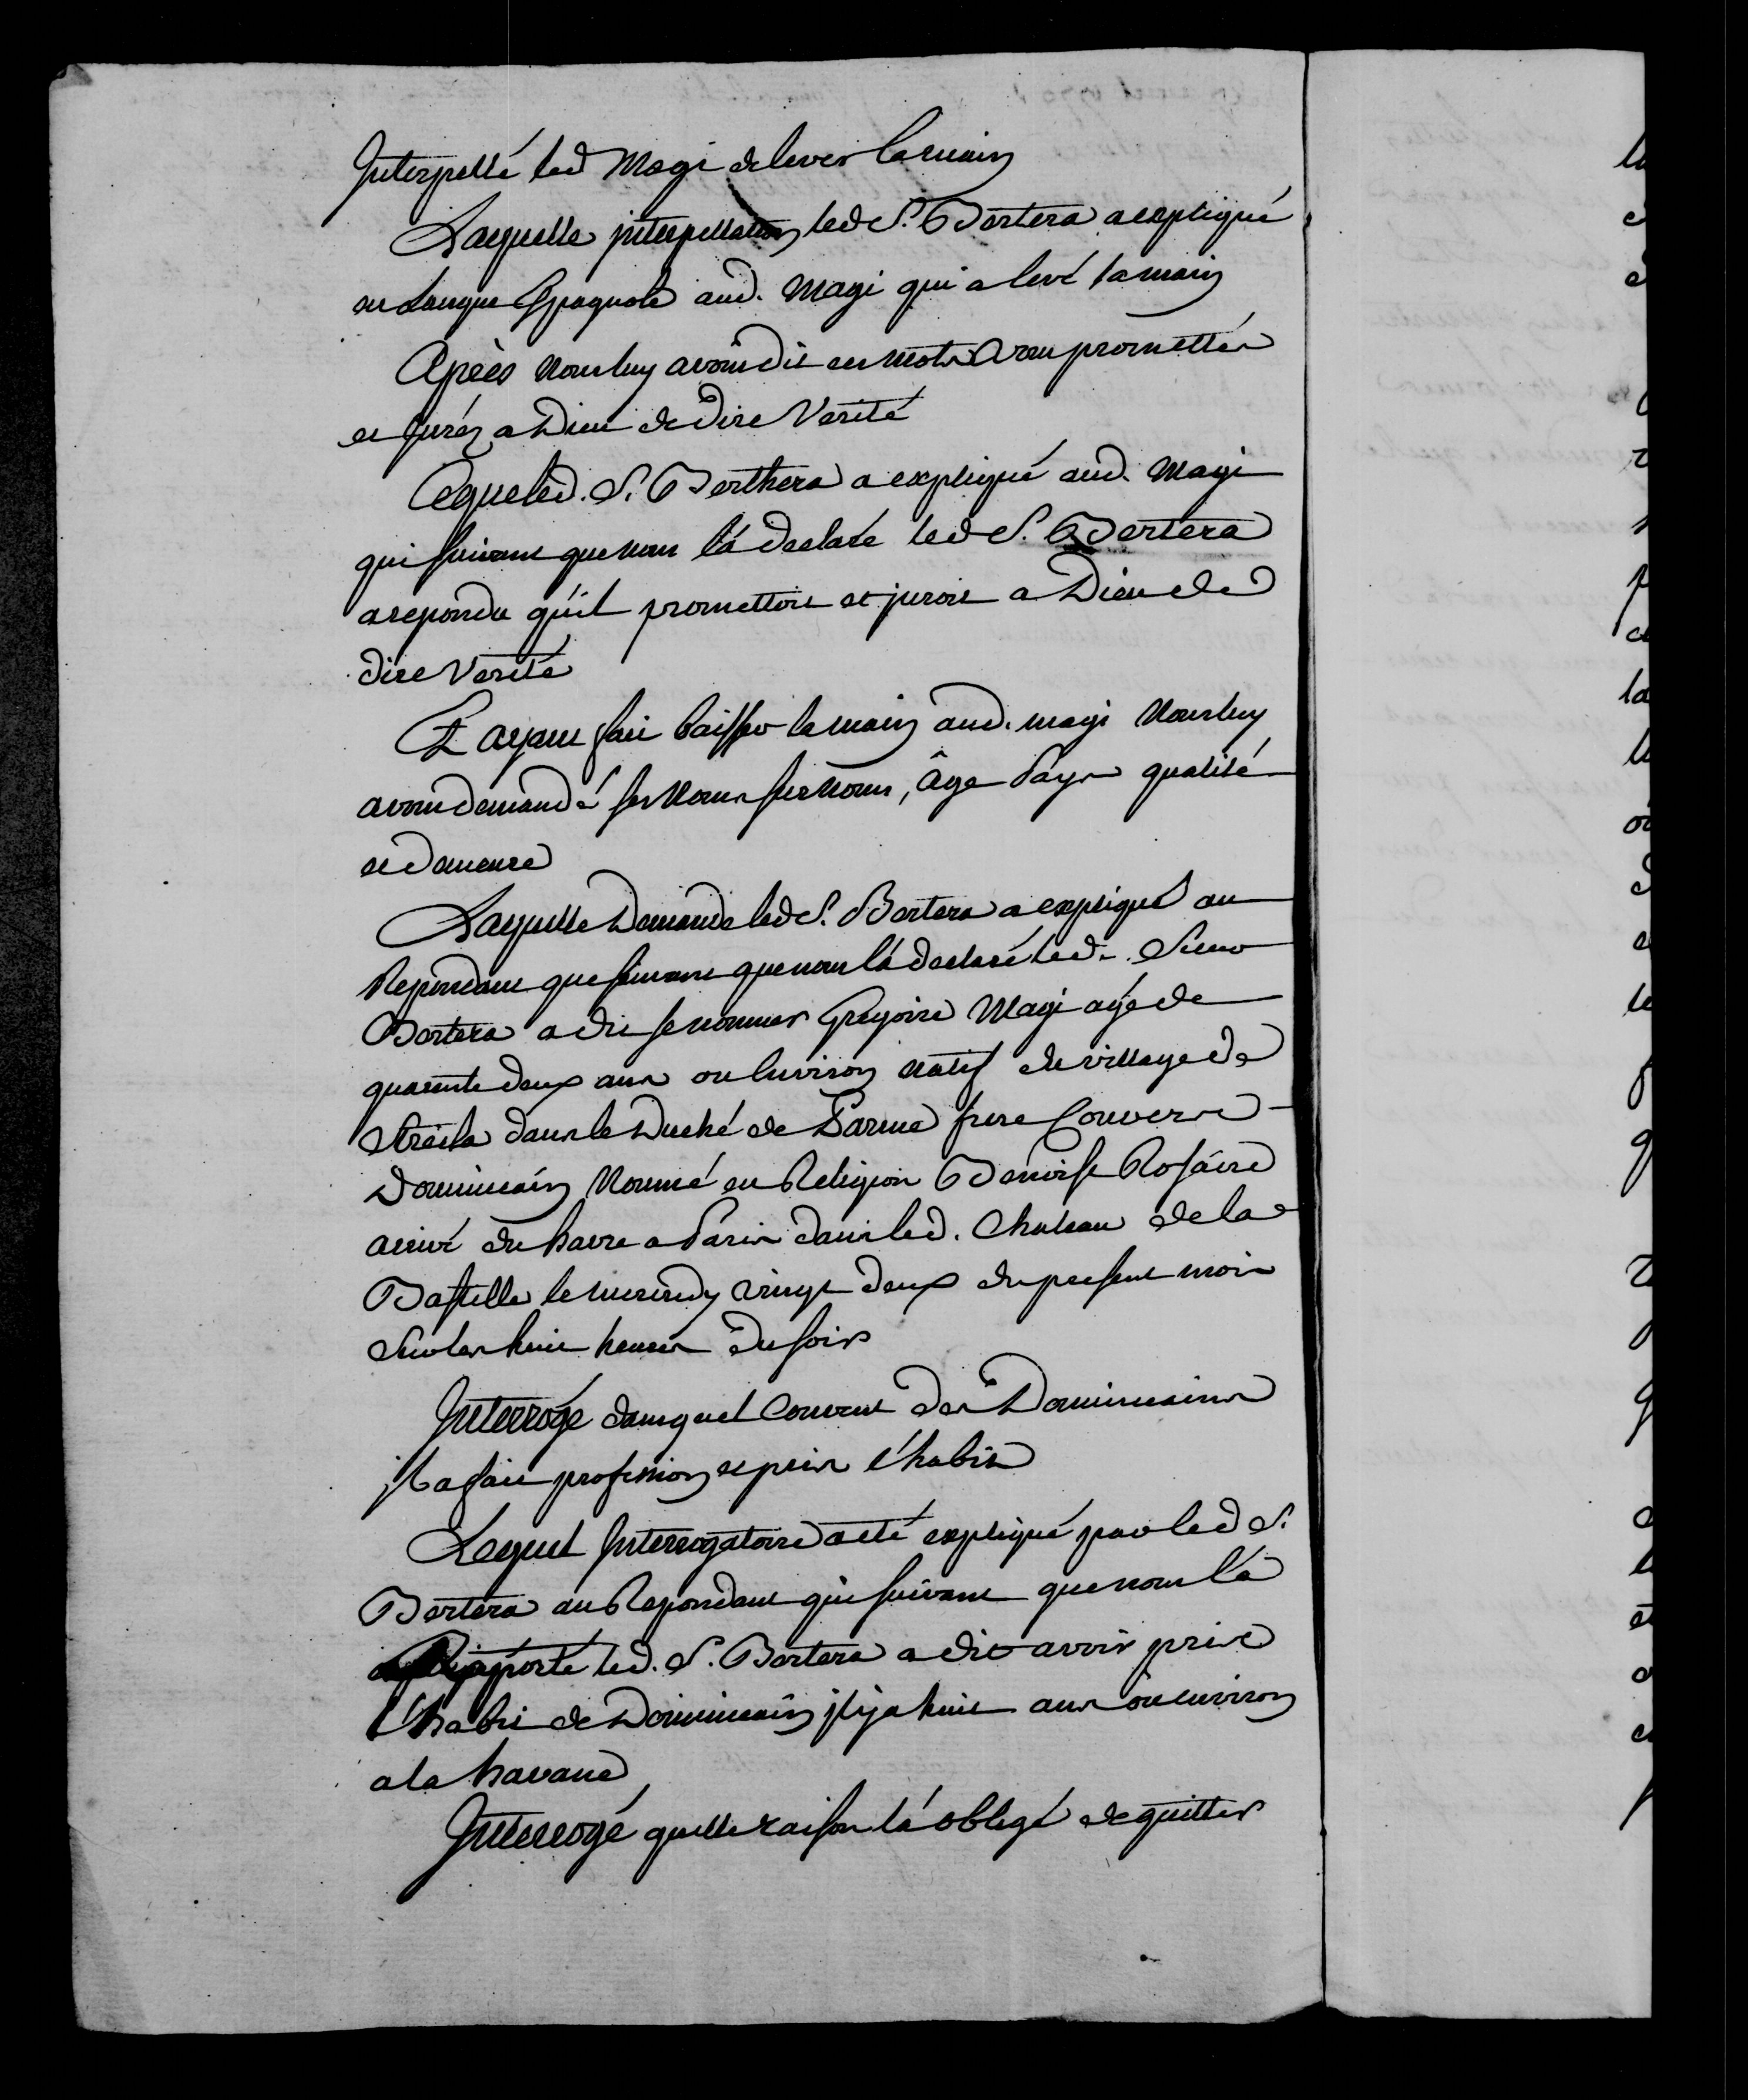 Interpellé led Magi de lever la main
Laquelle interpellation led S. Bertera a expliqué
en Langue Espagnole aud. Magi qui a levé la main
Après nous luy avons dit ces mots Vous promettés
et jurés a Dieu de dire Verité
Ce que led. S. Berthera a expliqué aud. Magi
qui suivant que nous l'a declaré led S. Bertera
a repondu qu'il promettoit et juroit a Dieu de
dire Verité
Et ayant fait baisser la main aud. magi Nous luy
avons demandé ses noms surnoms, âge Pays qualité
et demeure
Laquelle Demande led S. Bertera a expliqué au
Repondant que suivant que nous l'a declaré led. Sieur
Bertera a dit se nommer Gregoire Magi agé de
quarente deux ans ou environ natif de village de
dans le Duché de Parme frere Convers
Dominicain Nommé en Religion Benoist Rosaire
arrivé du havre a Paris dans led. Chateau de la
Bastille le mercredy vingt deux du present mois
sur les huit heures du soir
Interrogé dans quel Couvent des Dominicains
il a fait profession et pris l'habit
Lequel Interrogatoire a eté expliqué par led S.
Bertera au Repondant qui suivant que nous l'a
rapporté led. S. Bertera a dit avoir pris
l'habit de Dominicain il y a huit ans ou environ
a la havane
Interrogé quelle raison l'a obligé de quitter